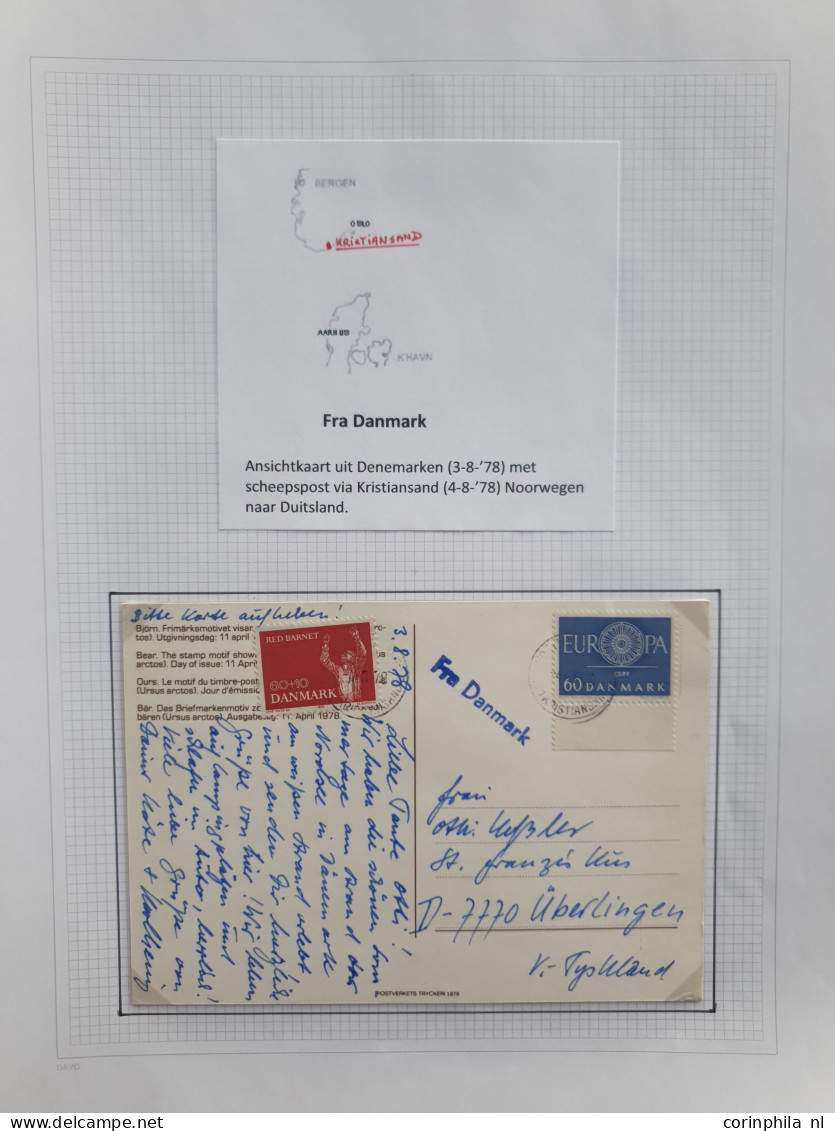 BERGEN
OSLO
KRISTIANSAND
AARHUS
K'HAVN
Fra Danmark
Ansichtkaart uit Denemarken (3-8-'78) met
scheepspost via Kristiansand (4-8-'78) Noorwegen
naar Duitsland.
Bitte Karte aufheben!
Björn. Frimärksmotivet visar
tos). Utgivningsdag: 11 april
Bear. The stamp motif show
arctos). Day of issue: 11 Apri
Ours. Le motif du timbre-post
(Ursus arctos). Jour d'émissio
Bär. Das Briefmarkenmotiv
bären (Ursus arctos). Ausgabetag: 11. April 1978.
RED BARNET
60+10
DANMARK
3.8.78
Liebe Tante Otti!
Wir haben die schönen Som
mertage am Strand der
Nordsee in Dänemark
am weißen Strand erlebt
und senden Dir herzliche
Grüße von hier! Wir
auf Campingplätzen und
schlafen im Auto, herrlich!
Viele liebe Grüße von
Deiner Käte + Karlheinz
Fra Danmark
EUROPA
CEPT
60 DANMARK
KRISTIANSAND
Frau
Otti
St. Franziskus
D-7770 Überlingen
V.-Tyskland
POSTVERKETS TRYCKERI 1978
DAVO
www.corinphila.nl